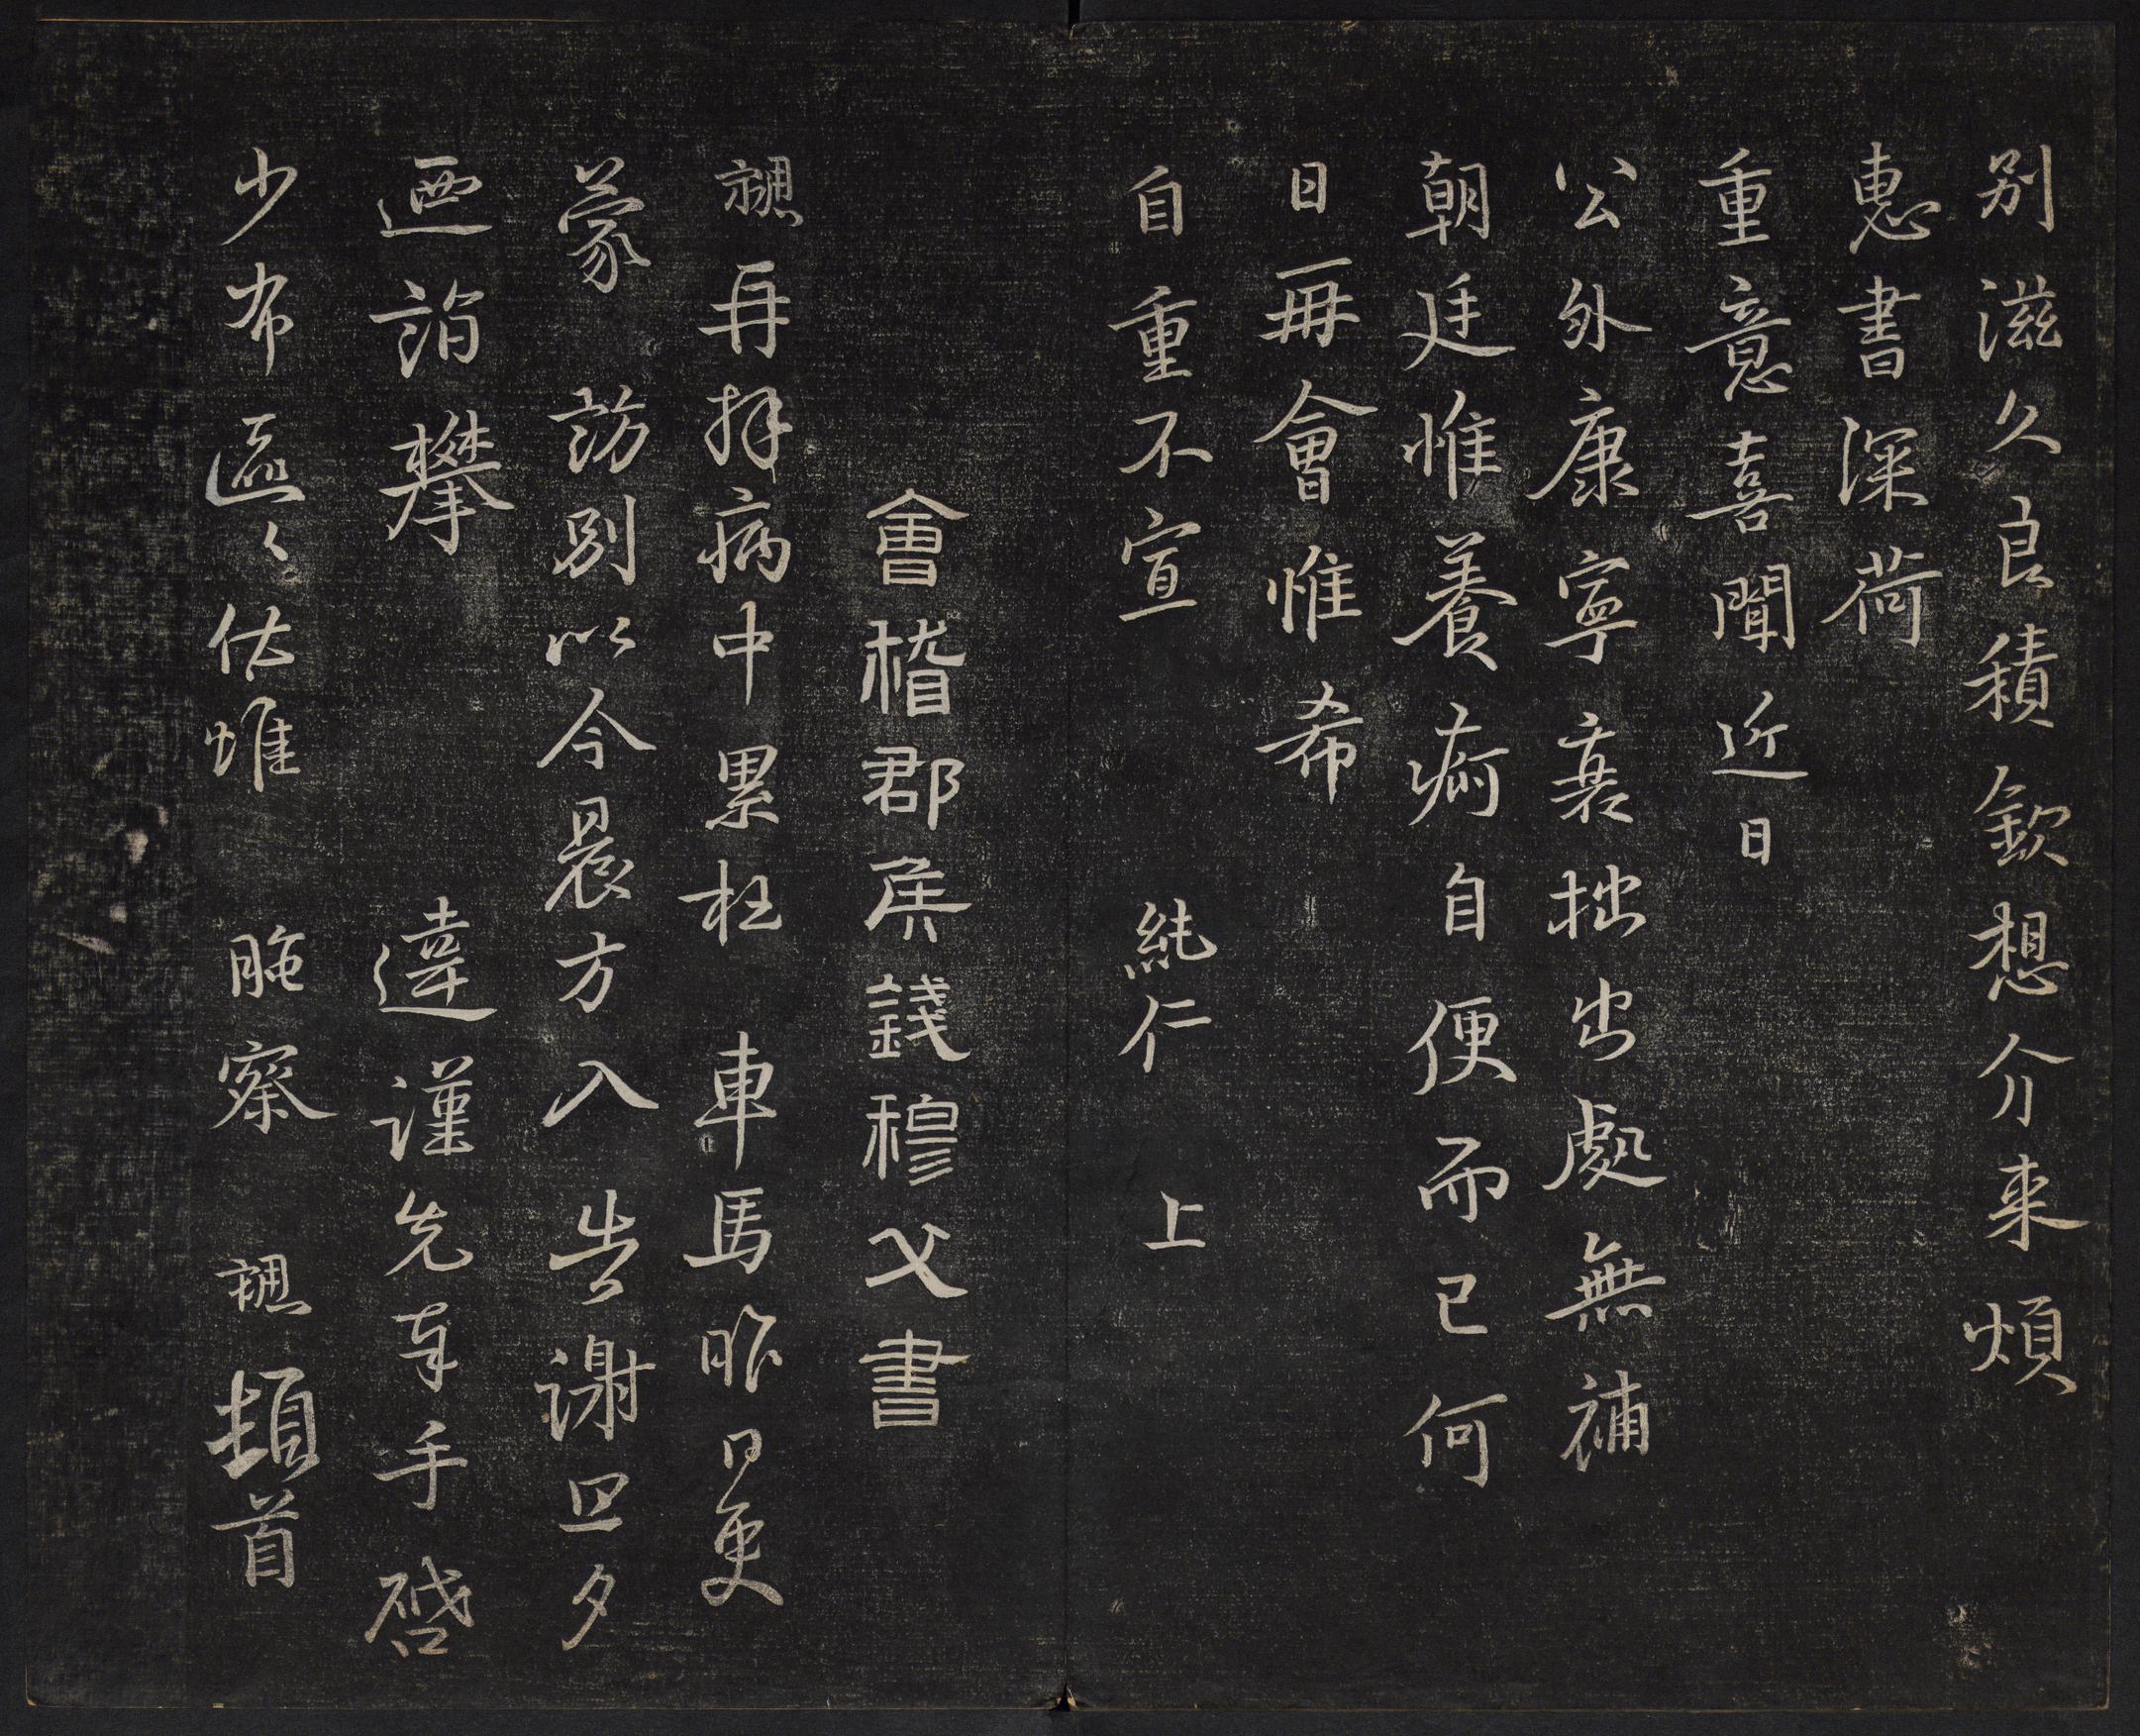 别滋久良積欽想介来煩
惠書深荷
重意喜聞近日
公外康寧衰拙出處無補
朝廷惟養痾自便而已何
日再會惟希
自重不宣 純仁 上
會稽郡侯錢穆父書
勰再拜病中累枉 車馬昨日更
蒙 訪別以今晨方入告謝旦夕
迺詣攀 違謹先奉手啓
少布區〻伏惟 昭察 勰頓首